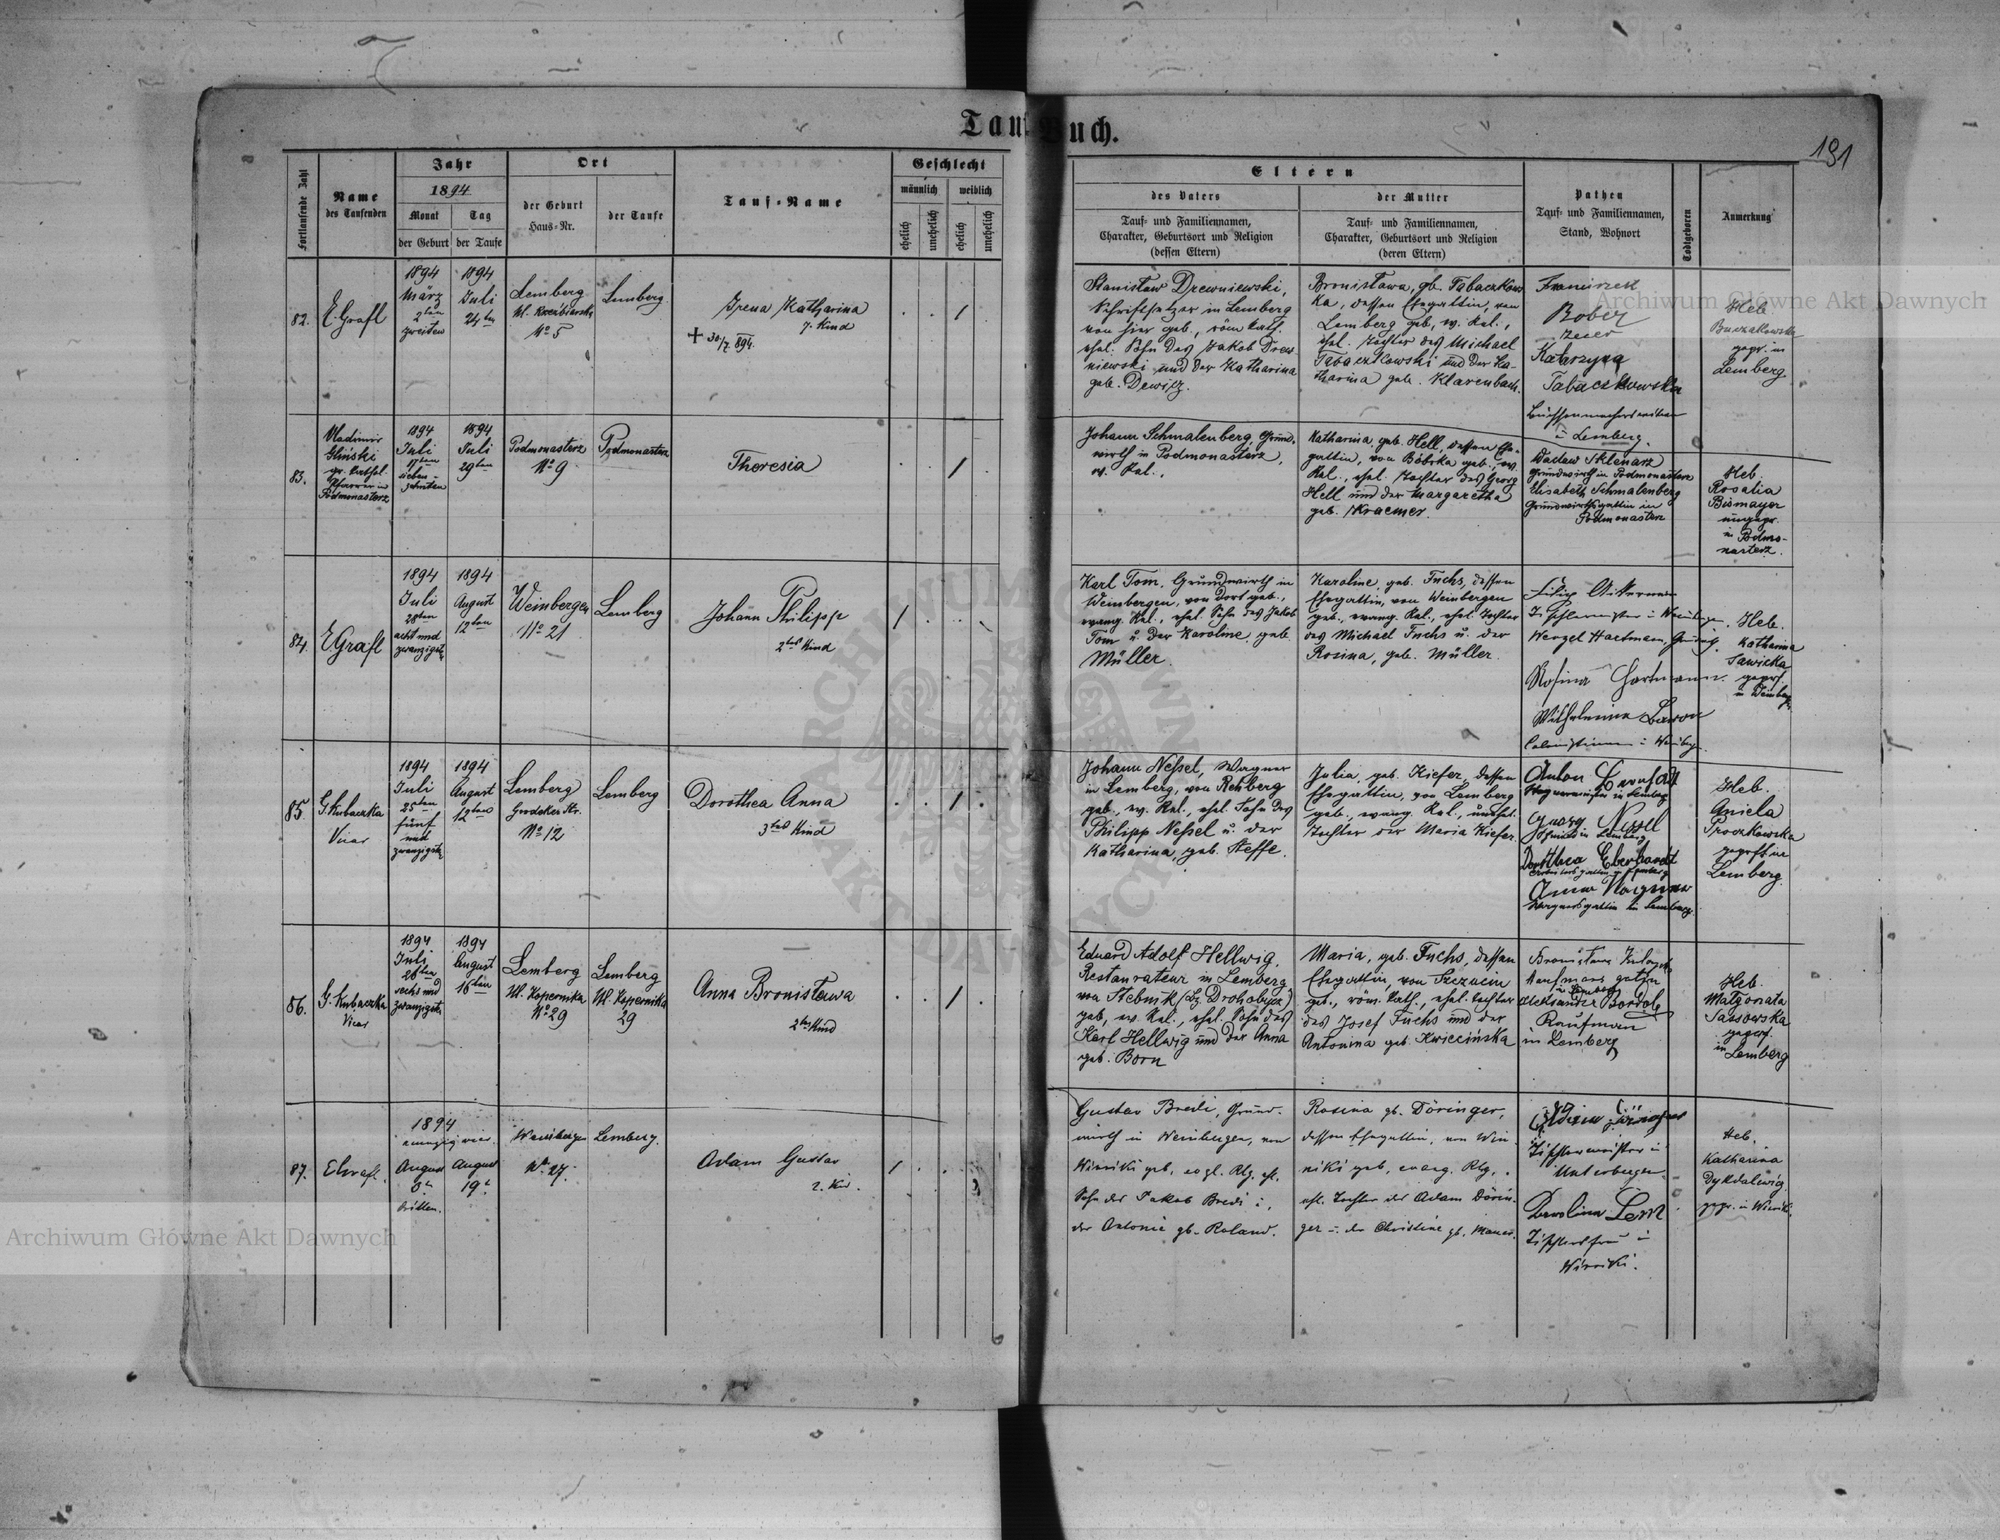 Tauf-Buch.
191
Fortlaufende Zahl
Name
des Taufenden
Jahr
1894
Monat
der Geburt
Tag
der Taufe
Ort
der Geburt
Haus-Nr.
der Taufe
Tauf-Name
Geschlecht
männlich
weiblich
ehelich
unehelich
ehelich
unehelich
Eltern
des Vaters
Tauf- und Familiennamen,
Charakter, Geburtsort und Religion
(dessen Eltern)
der Mutter
Tauf- und Familiennamen,
Charakter, Geburtsort und Religion
(deren Eltern)
Pathen
Tauf- und Familiennamen,
Stand, Wohnort
Todtgeboren
Anmerkung
82.
E. Grafl
1894
März
2ten
zweiten
1894
Juli
24ten
Lemberg
No 5
Lemberg
Irena Katharina
7. Kind
+ 30/7 894.
Stanisław Drewniewski,
Schriftsetzer in Lemberg
von hier geb., röm. kath.
ehel. Sohn des Jakob Drew-
niewski und der Katharina
geb. Dewitz.
Bronisława, gb. Tabaczkows-
ka, dessen Ehegattin, von
Lemberg geb., ev. Rel.,
ehel. Tochter des Michael
Tabaczkowski und der Ka-
tharina geb. Klarenbach.
Franciszek
Bober
Katarzyna
Tabaczkowska
in Lemberg.
Heb.
gepr. in
Lemberg
83.
Vladimir
Gliński
gr. kathol.
Pfarrer in
Podmonasterz
1894
Juli
17ten
sieben-
zehnten
1894
Juli
29ten
Podmonasterz
No 9
Podmonasterz
Theresia
Johann Schmalenberg, Grund-
wirth in Podmonasterz,
ev. Rel.,
Katharina, geb. Hell, dessen Ehe-
gattin, von Bóbrka geb., ev.
Rel., ehel. Tochter des Georg
Hell und der Margaretha
geb. Kraemer.
Wacław Sklenarz
Grundwirth in Podmonasterz
Elisabeth Schmalenberg
Grundwirthsgattin in
Podmonasterz
Heb.
Rosalia
Bismayer
ungepr.
in Podmo-
nasterz.
84.
E Grafl
1894
Juli
28ten
acht und
zwanzigst.
1894
August
12ten
Weinbergen
No 21
Lemberg
Johann Philipp
2tes Kind
Karl Tom, Grundwirth in
Weinbergen, von dort geb.,
evang. Rel., ehel. Sohn des Jakob
Tom u. der Karoline, geb.
Müller.
Karoline, geb. Fuchs, dessen
Ehegattin, von Weinbergen
geb., evang. Rel., ehel. Tochter
des Michael Fuchs u. der
Rosina, geb. Müller.
Wenzel Hartmann,
Rosina Hartmann.
Wilhelmine
Heb.
Katharina
Sawicka
geprf.
in Weinberg.
85
G. Kubaczka
Vicar
1894
Juli
25ten
fünf
und
zwanzigst.
1894
August
12ten
Lemberg
Grodeker Str.
No 12
Lemberg
Dorothea Anna
3tes Kind
Johann Neßel, Wagner
in Lemberg, von Rehberg
geb., ev. Rel., ehel. Sohn des
Philipp Neßel u. der
Katharina, geb. Steffe.
Julia, geb. Kiefer, dessen
Ehegattin, von Lemberg
geb., evang. Rel., unehel.
Tochter der Maria Kiefer.
Anton
Wagnermeister in Lemberg
Georg Nessel
Schmied in Lemberg
Dorothea Eberhardt
Anna Wagner
Wagnersgattin in Lemberg
Heb.
Aniela
Proczkowska
geprft in
Lemberg
86.
G. Kubaczka
Vicar
1894
Juli
26ten
sechs und
zwanzigst.
1894
August
16ten
Lemberg
Ul. Kopernika
No 29
Lemberg
Ul. Kopernika
29
Anna Bronisława
2tes Kind
Eduard Adolf Hellwig,
Restaurateur in Lemberg,
von Stebnik (Bz. Drohobycz)
geb., ev. Rel., ehel. Sohn des
Karl Hellwig und der Anna
geb. Born
Maria, geb. Fuchs, dessen
Ehegattin, von Szczucin
geb., röm. Kath., ehel. Tochter
des Josef Fuchs und der
Antonina geb. Kwiecińska
Kaufmansgattin
in Lemberg
Aleksander
Kaufman
in Lemberg
Heb.
Małgorzata
Sassowska
geprf.
in Lemberg
87.
1894
August
3t
dritten.
August
19t
Weinbergen
No 27.
Lemberg.
Adam Gustav
2. Kind.
Gustav Bredi, Grund-
wirth in Weinbergen, von
Winniki geb., evgl. Rlg., ehl.
Sohn des Jakob Bredi u.
der Antonie gb. Roland.
Rosina gb. Döringer,
dessen Ehegattin, von Win-
niki geb., evang. Rlg.,
ehl. Tochter des Adam Dörin-
ger u. der Christine gb. Manes.
Tischlermeister in
Unterbergen
Karolina Lenz
Tischlersfrau in
Winniki.
Heb.
Katharina
Dykdalewig
gepr. in Winnik.
Archiwum Główne Akt Dawnych
Archiwum Główne Akt Dawnych
ARCHIWUM GŁÓWNE AKT DAWNYCH